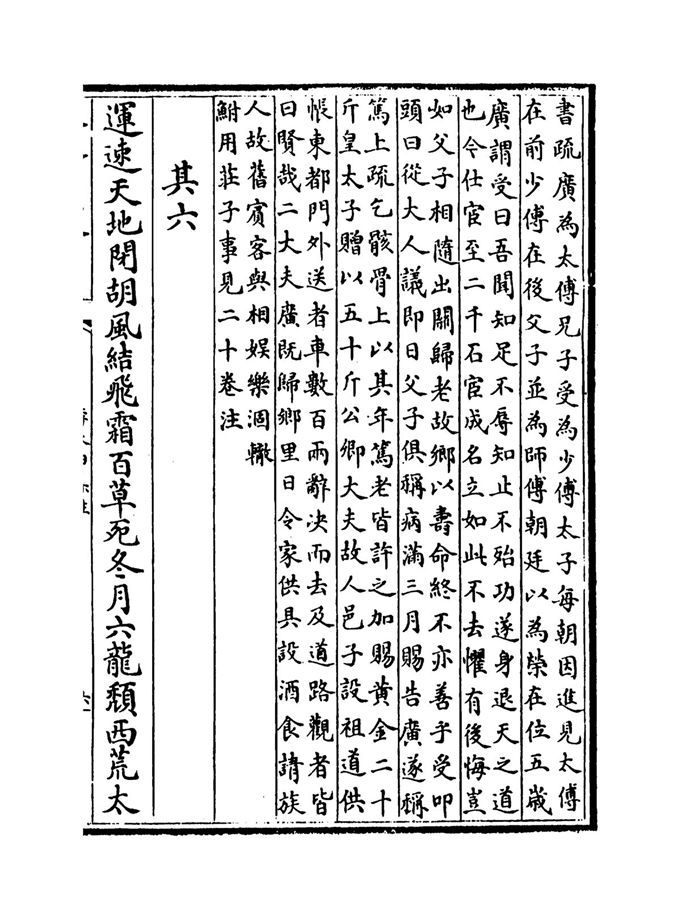 書疏廣為太傅兄子受為少傅太子每朝因進見太傅
在前少傅在後父子並為師傅朝廷以為榮在位五歲
廣謂受曰吾聞知足不辱知止不殆功遂身退天之道
也今仕宦至二千石宦成名立如此不去懼有後悔豈
如父子相隨出關歸老故鄉以壽命終不亦善乎受叩
頭曰從大人議即日父子俱稱病滿三月賜告廣遂稱
篤上疏乞骸骨上以其年篤老皆許之加賜黄金二十
斤皇太子贈以五十斤公卿大夫故人邑子設祖道供
悵東都門外送者車數百兩辭决而去及道路觀者皆
曰賢哉二大夫廣既歸鄉里日令家供具設酒食請族
人故舊賓客與相娱樂涸轍
鮒用莊子事見二十卷注
其六
運速天地閉胡風結飛霜百草死冬月六龍頽西荒太